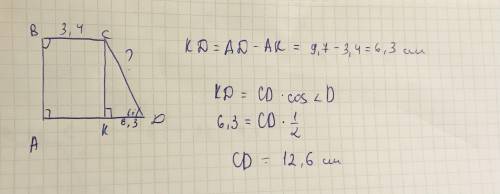 B 3,4 C
?
A K 60 6,3 D
KD = AD - AK = 9,7 - 3,4 = 6,3 см
KD = CD · cos ∠D
6,3 = CD · 1/2
CD = 12,6 см